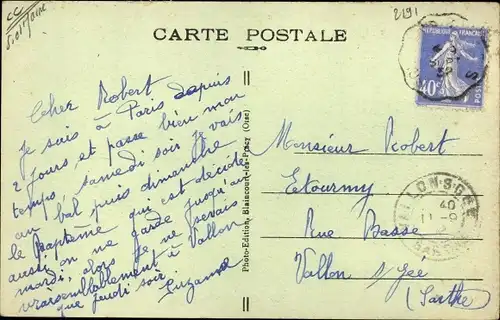 2191
CARTE POSTALE
Cher Robert
Je suis à Paris depuis
2 jours et passe bien mon
temps samedi soir je vais
au bal puis dimanche
le Baptême qui est décidé
aussi on me garde jusqu'au
mardi, alors je ne serais
vraisemblablement à Vallon
que jeudi soir.
Suzanne
Photo-Edition, Blaincourt-les-Précy (Oise)
REPUBLIQUE FRANCAISE
40c
POSTES
VALLON-S-GEE
40
11-9
SARTHE
Monsieur Robert
Etourmy
Rue Basse
Vallon s/Gée
(Sarthe)